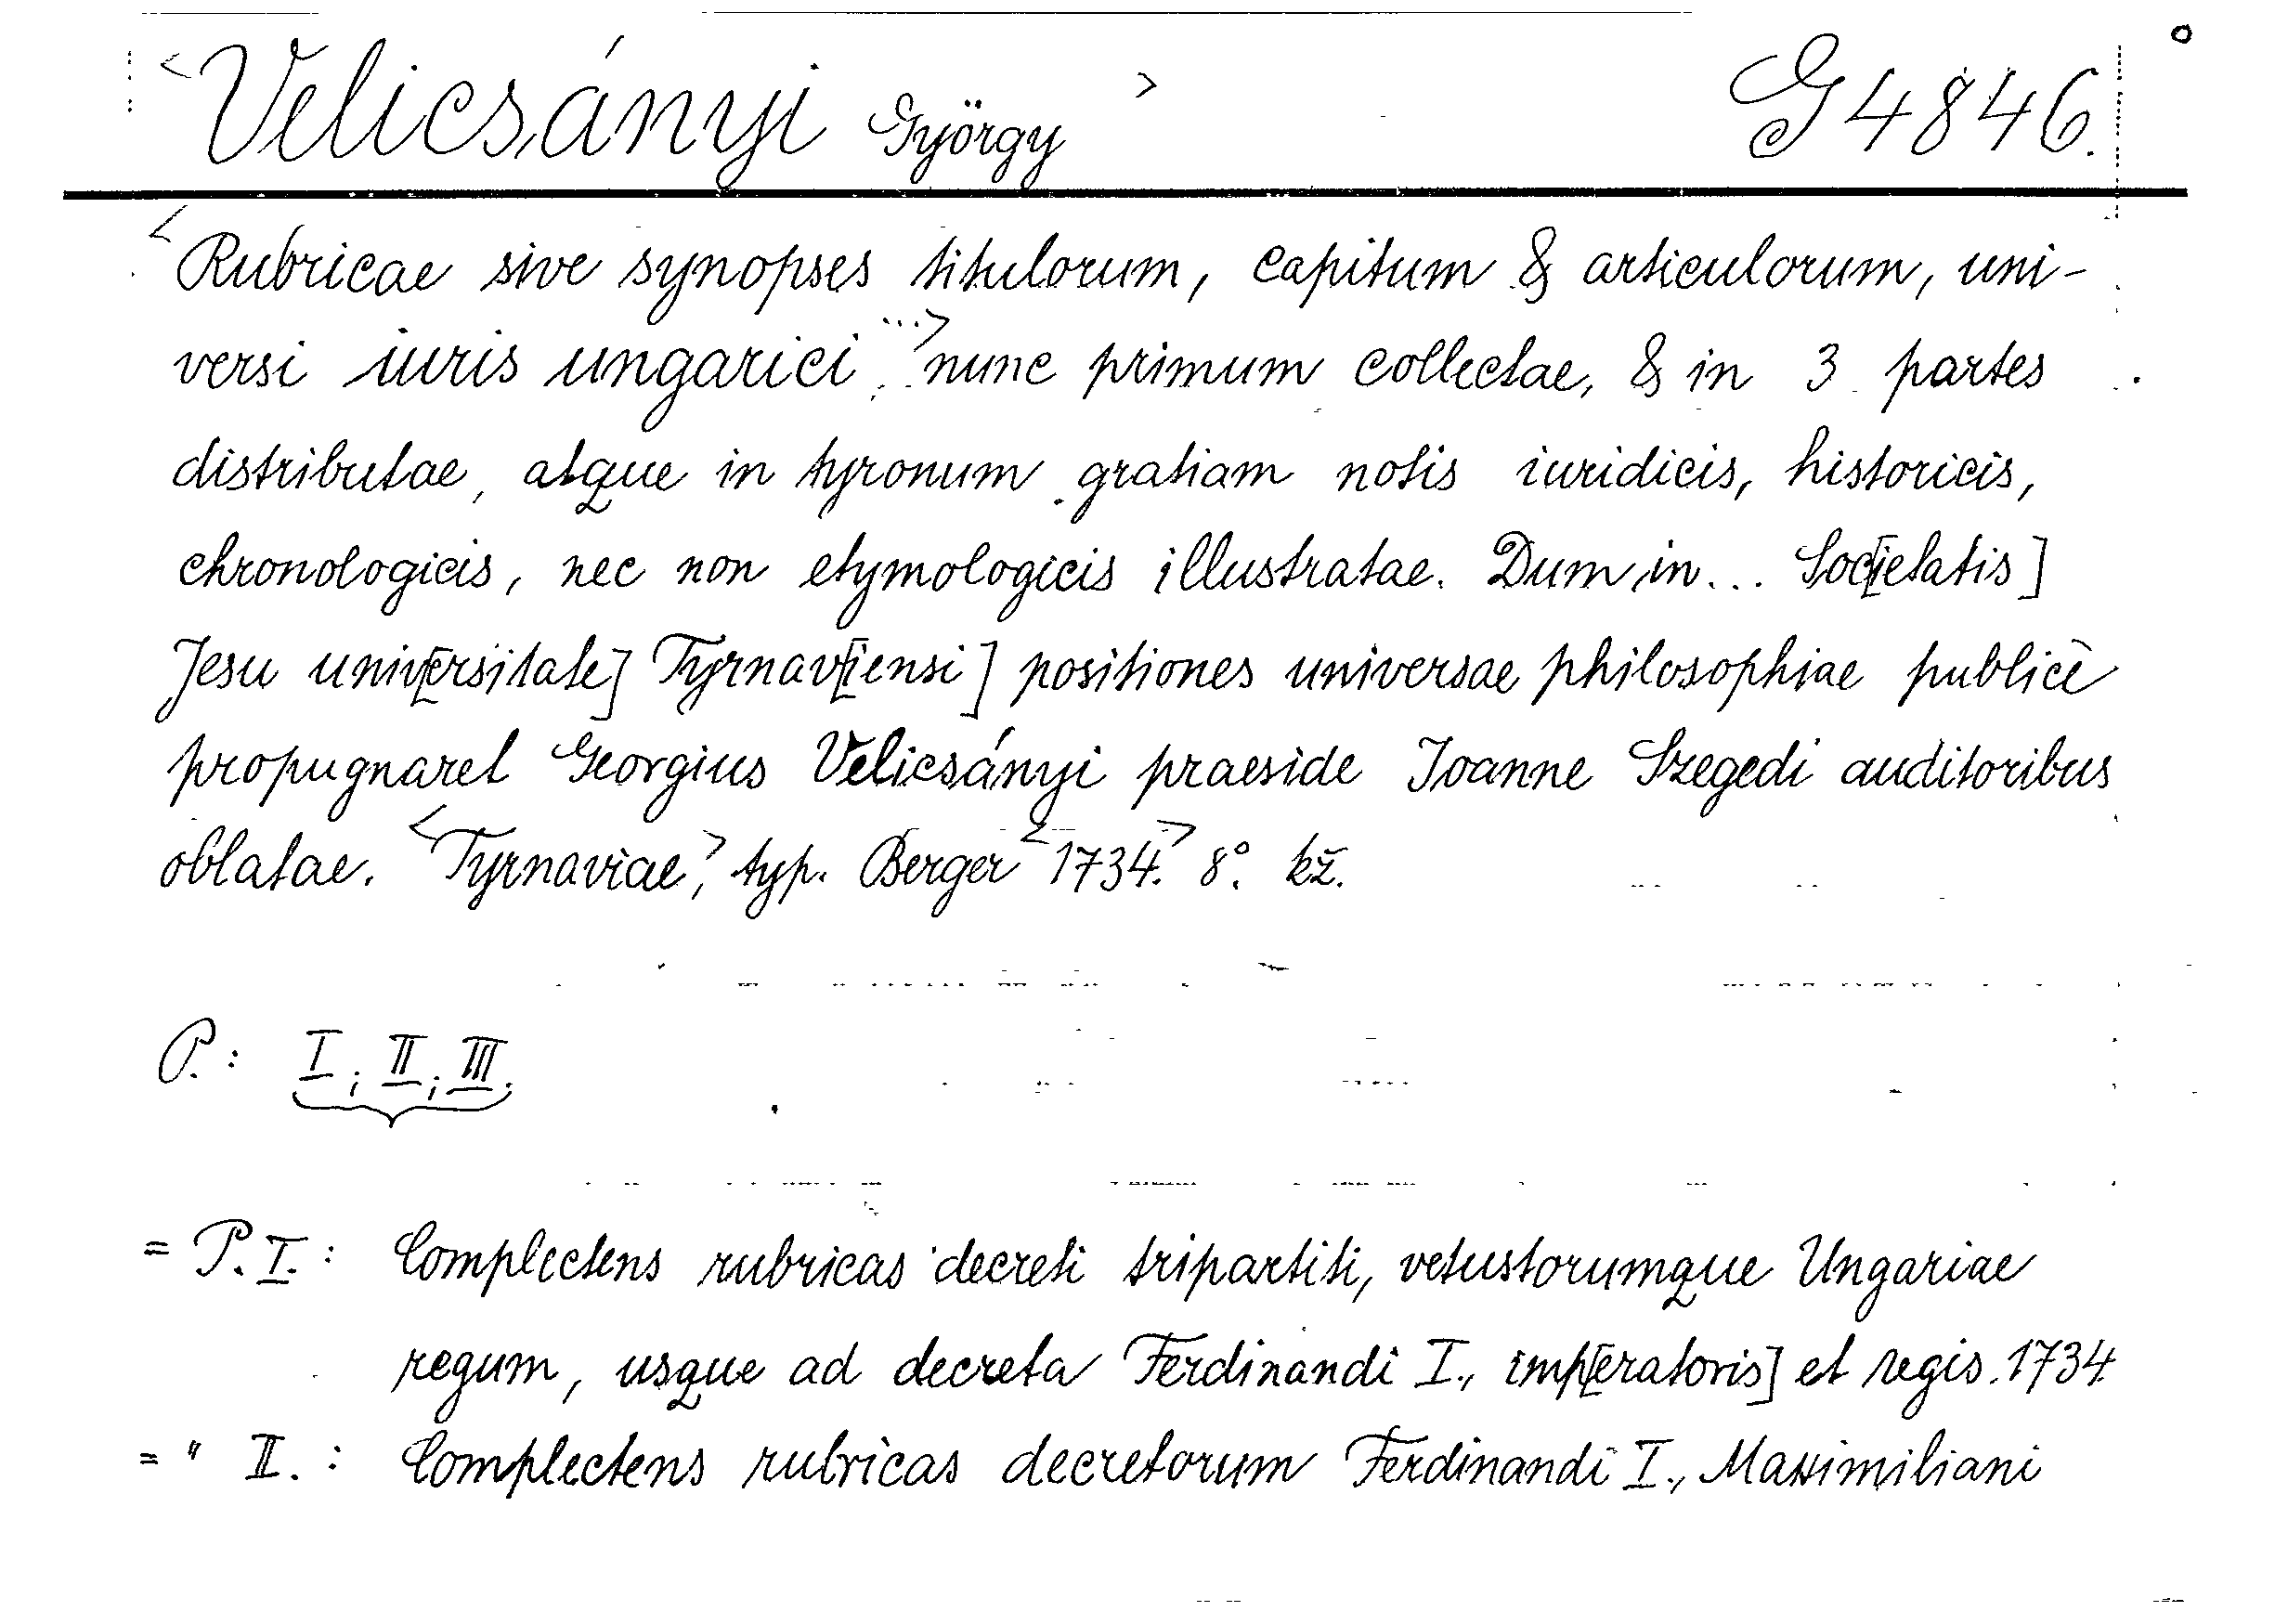 <Velicsányi György> G 4846.
<Rubricae sive synopses titulorum, capitum & articulorum, uni-
versi iuris ungarici, ...> nunc primum collectae, & in 3 partes
distributae, atque in tyronum gratiam notis iuridicis, historicis,
chronologicis, nec non etymologicis illustratae. Dum in... Soc[ietatis]
Jesu univ[ersitate] Tyrnav[iensi] positiones universae philosophiae publicè
propugnaret Georgius Velicsányi praeside Joanne Szegedi auditoribus
oblatae. <Tyrnaviae>, typ. Berger <1734.> 8°. kž.
P.: I; II; III.
= P. I.: Complectens rubricas decreti tripartiti, vetustorumque Ungariae
regum, usque ad decreta Ferdinandi I., imp[eratoris] et regis. 1734
= " II.: Complectens rubricas decretorum Ferdinandi I., Maximiliani